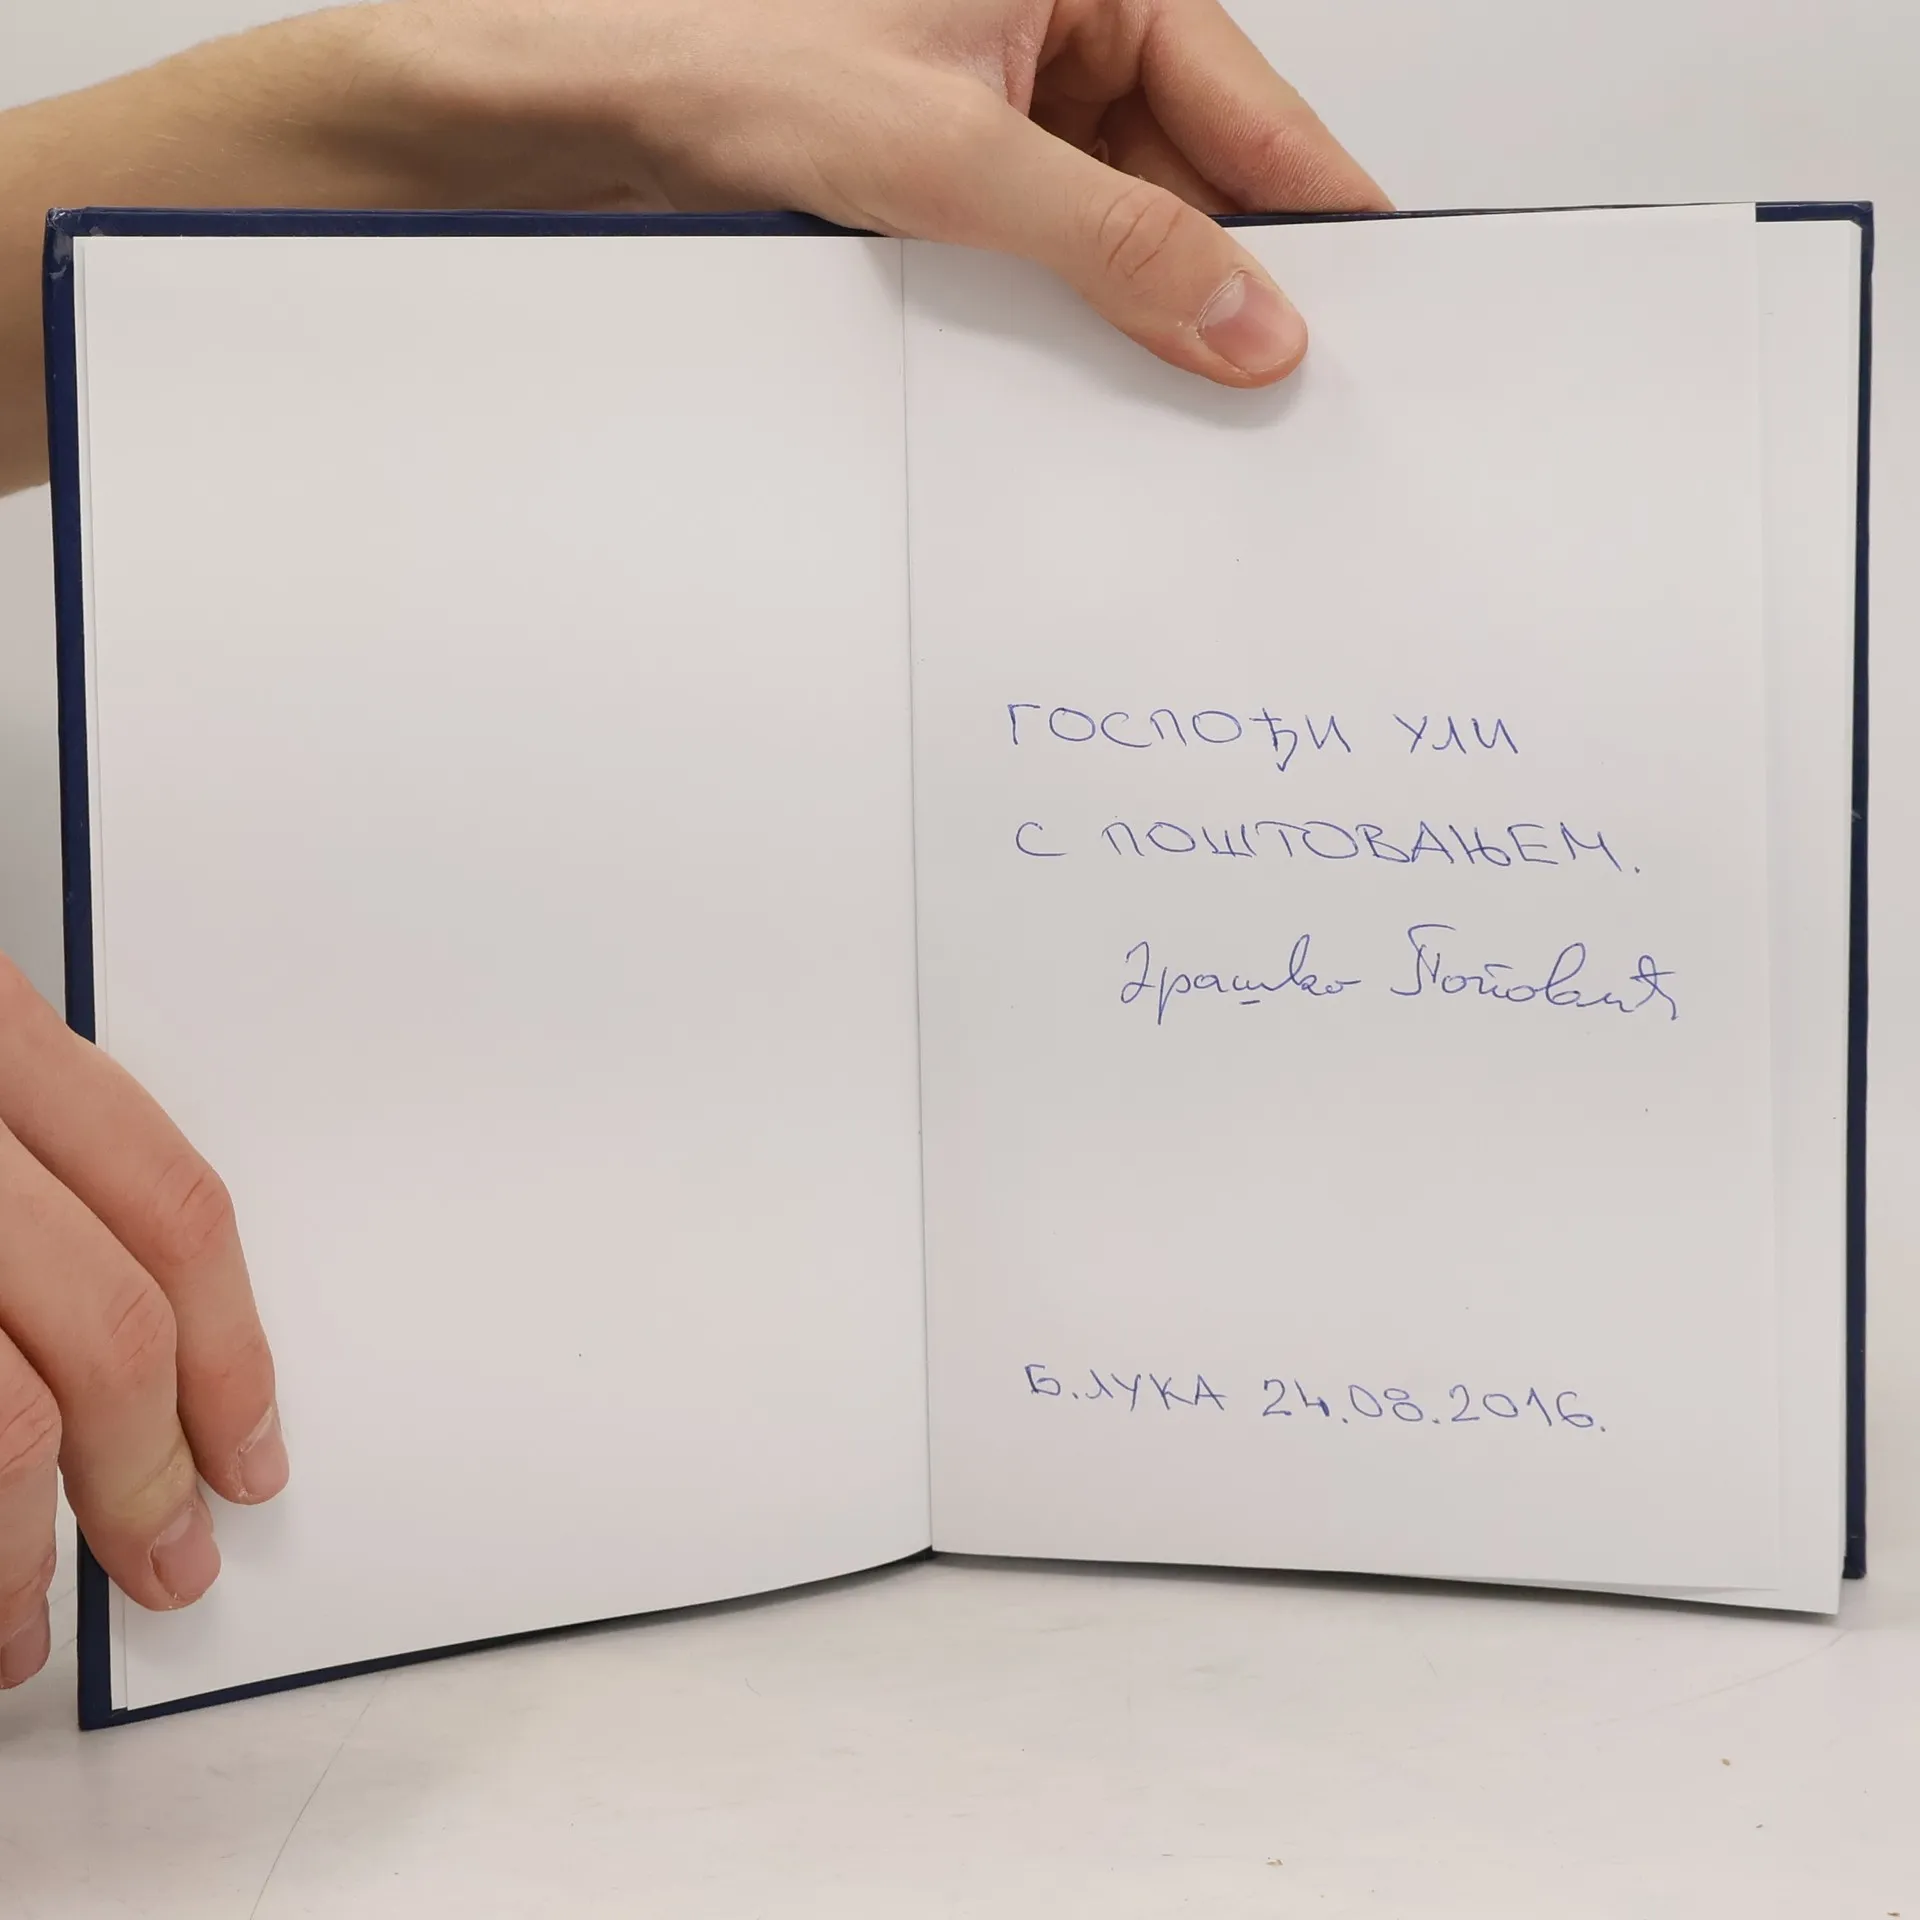 ГОСПОЂИ УЛИ
С ПОШТОВАЊЕМ.
Поповић
Б.ЛУКА 24.08.2016.